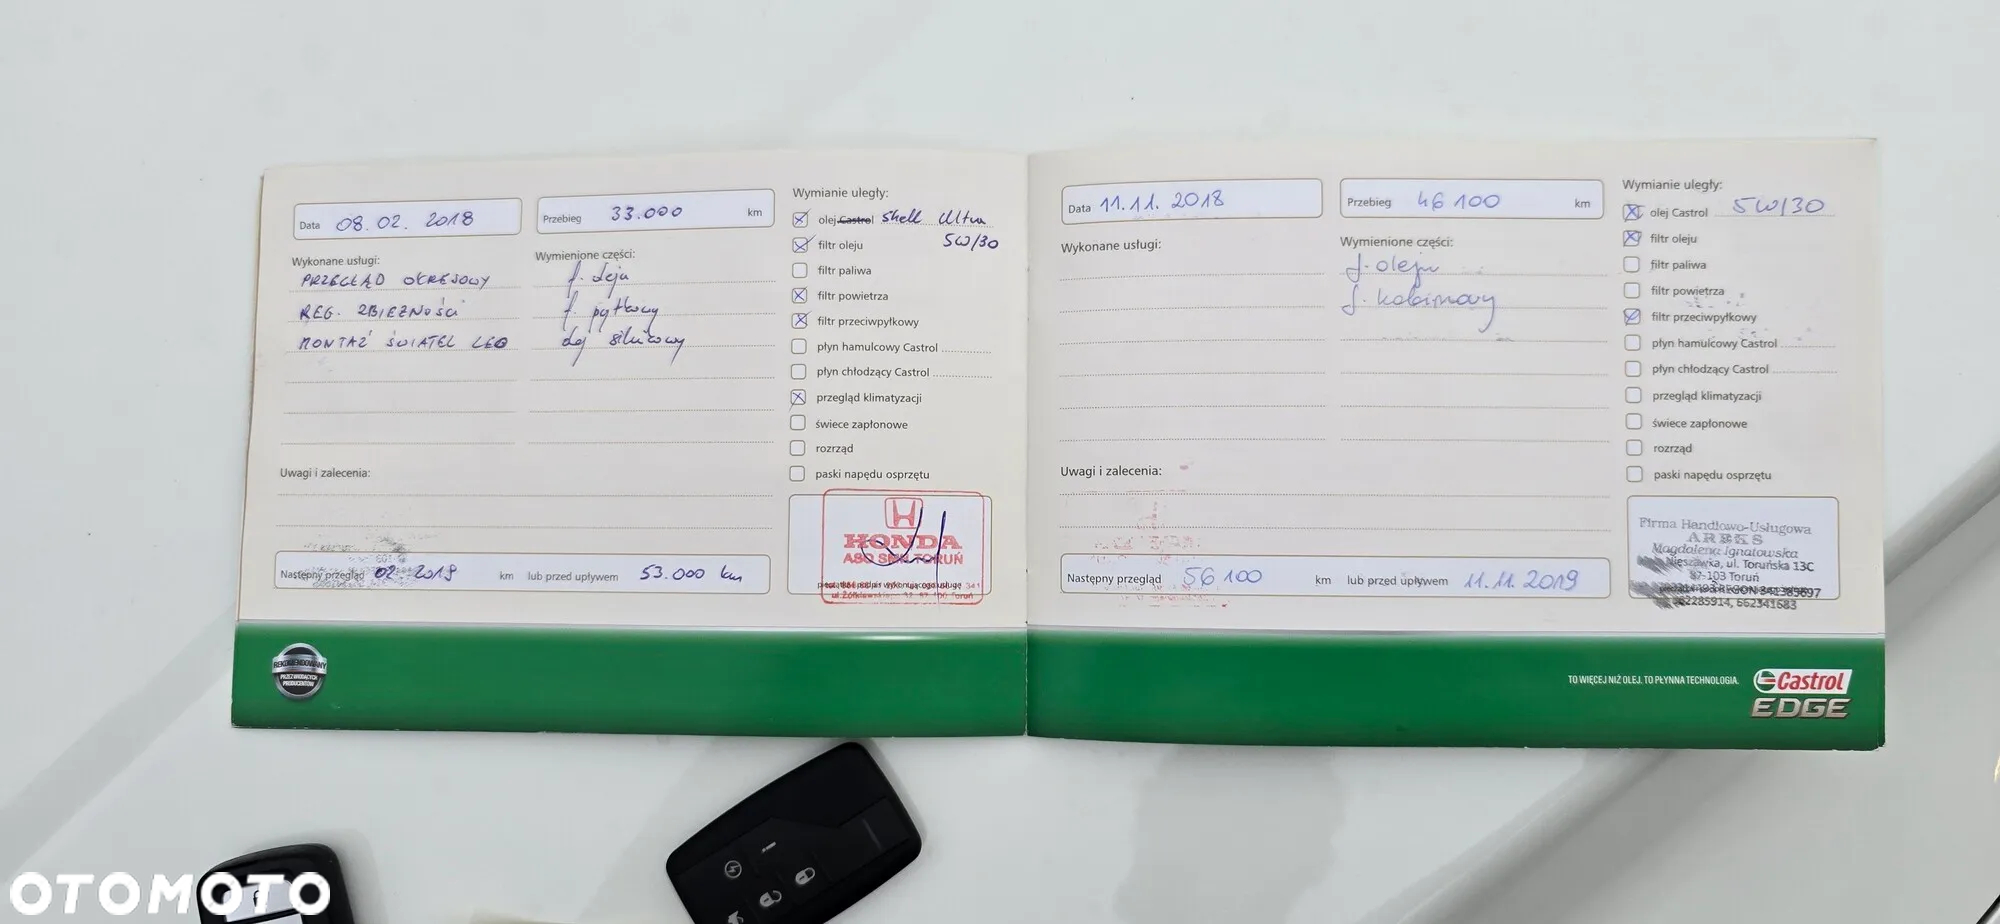 Data 08.02. 2018
Przebieg 33.000 km
Wykonane usługi:
PRZEGLĄD OKRESOWY
REG. ZBIEŻNOŚCI
MONTAŻ ŚWIATEŁ LED
Wymienione części:
f. oleju
f. pyłkowy
olej silnikowy
Wymianie uległy:
olej Castrol Shell Ultra
filtr oleju 5W/30
filtr paliwa
filtr powietrza
filtr przeciwpyłkowy
płyn hamulcowy Castrol
płyn chłodzący Castrol
przegląd klimatyzacji
świece zapłonowe
rozrząd
paski napędu osprzętu
Uwagi i zalecenia:
Następny przegląd 02 2019 km lub przed upływem 53.000 km
HONDA
ASO SPIN TORUŃ
REKOMENDOWANY
PRZEZ WIODĄCYCH
PRODUCENTÓW
Data 11.11. 2018
Przebieg 46 100 km
Wykonane usługi:
Wymienione części:
f. oleju
f. kabinowy
Wymianie uległy:
olej Castrol 5W/30
filtr oleju
filtr paliwa
filtr powietrza
filtr przeciwpyłkowy
płyn hamulcowy Castrol
płyn chłodzący Castrol
przegląd klimatyzacji
świece zapłonowe
rozrząd
paski napędu osprzętu
Uwagi i zalecenia:
Następny przegląd 56 100 km lub przed upływem 11.11. 2019
Firma Handlowo-Usługowa
AREKS
Magdalena Ignatowska
Nieszawka, ul. Toruńska 13C
87-103 Toruń
REGON 341385697
662341683
TO WIĘCEJ NIŻ OLEJ. TO PŁYNNA TECHNOLOGIA.
Castrol
EDGE
OTOMOTO